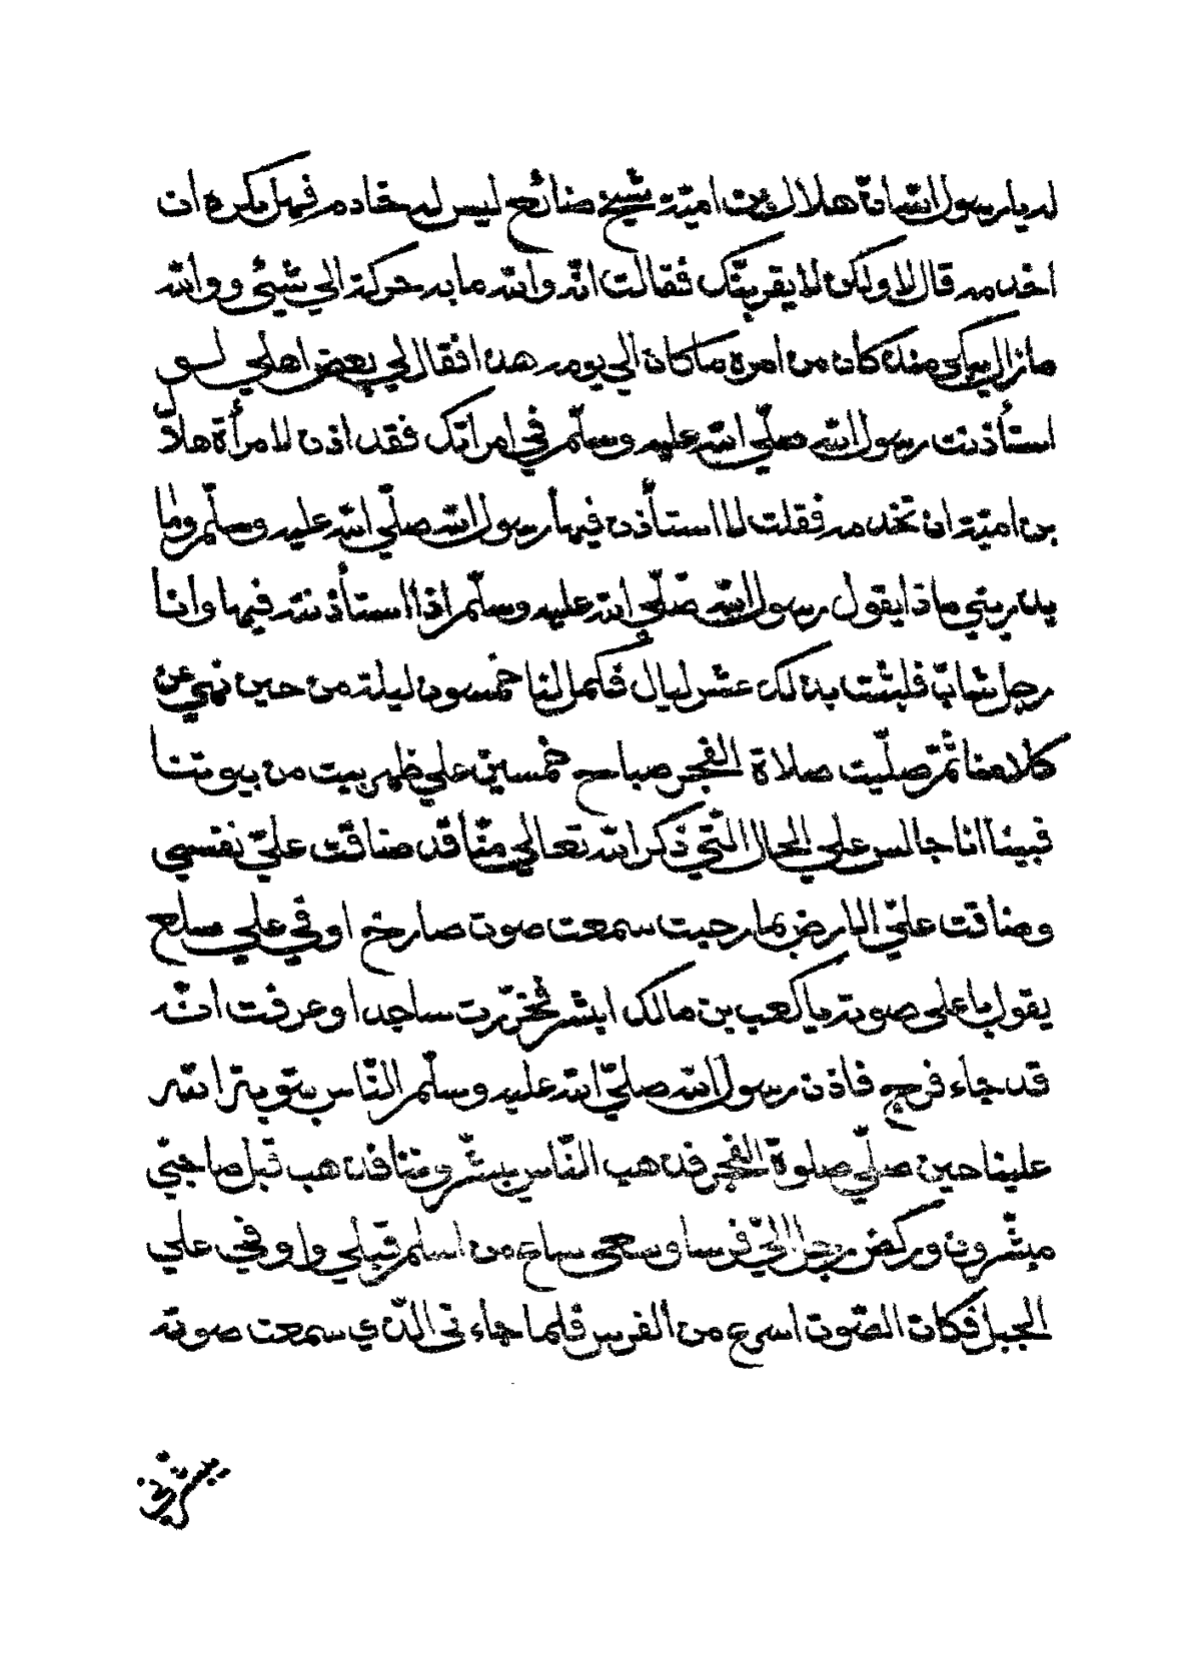 له يا رسول الله ان هلال بن امية شيخ ضائع ليس له خادم فهل تكره ان
اخدمه قال لا ولكن لا يقربنّك فقالت انّه والله ما به حركة الي شيئ ووالله
مازال يبكي منذ كان من امره ما كان الي يومه هذا فقال لي بعض اهلي لو
استأذنت رسول الله صلّي الله عليه وسلّم في امراتك فقد اذن لامرأة هلال
بن اميّة ان تخدمه فقلت لا استأذن فيها رسول الله صلّي الله عليه وسلّم وما
يدريني ماذا يقول رسول الله صّلّي الله عليه وسلّم اذا استأذنته فيها وانا
رجل شابّ فلبثت بذلك عشر ليال فكمل لنا خمسون ليلة من حين نهي عن
كلامنا ثمّ صلّيت صلاة الفجر صباح خمسين علي ظهر بيت من بيوتنا
فبينا انا جالس علي الحال الّتي ذكر الله تعالي منّا قد ضاقت عليّ نفسي
وضاقت عليّ الارض بما رحبت سمعت صوت صارخ اوفي علي سلع
يقول باعلي صوته يا كعب بن مالك ابشر فخررت ساجدا وعرفت انّه
قد جاء فرج فاذن رسول الله صلّي الله عليه وسلّم النّاس بتوبة الله
علينا حين صلّي صلوة الفجر فذهب النّاس يبشّروننا فذهب قبل صاحبيّ
مبشّرون وركض رجل اليّ فرسا وسعي ساع من اسلم قبلي واوفي علي
الجبل فكان الصّوت اسرع من الفرس فلما جاءني الّذي سمعت صوته
يبشرني